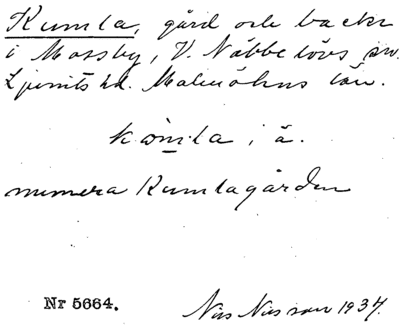 Kumla, gård och backe
i Mossby, V. Näbbelövs sn.
Ljunits hd. Malmöhus län.
kömla, i ä.
numera Kumlagården
Nr 5664.
Nils Nilsson 1937.